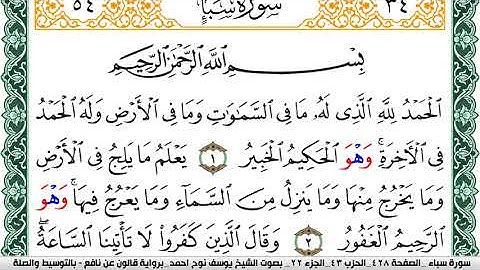 ٥٤ سورة سبإ ٣٤
بِسْمِ ٱللَّهِ ٱلرَّحْمَٰنِ ٱلرَّحِيمِ
ٱلْحَمْدُ لِلَّهِ ٱلَّذِى لَهُۥ مَا فِى ٱلسَّمَٰوَٰتِ وَمَا فِى ٱلْأَرْضِ وَلَهُ ٱلْحَمْدُ
فِى ٱلْأَخِرَةِ وَهْوَ ٱلْحَكِيمُ ٱلْخَبِيرُ ١ يَعْلَمُ مَا يَلِجُ فِى ٱلْأَرْضِ
وَمَا يَخْرُجُ مِنْهَا وَمَا يَنزِلُ مِنَ ٱلسَّمَآءِ وَمَا يَعْرُجُ فِيهَا وَهْوَ
ٱلرَّحِيمُ ٱلْغَفُورُ ٢ وَقَالَ ٱلَّذِينَ كَفَرُوا۟ لَا تَأْتِينَا ٱلسَّاعَةُ
سورة سباء _الصفحة ٤٢٨_ الحزب ٤٣_ الجزء ٢٢_ بصوت الشيخ يوسف نوح احمد_ برواية قالون عن نافع - بالتوسيط والصلة